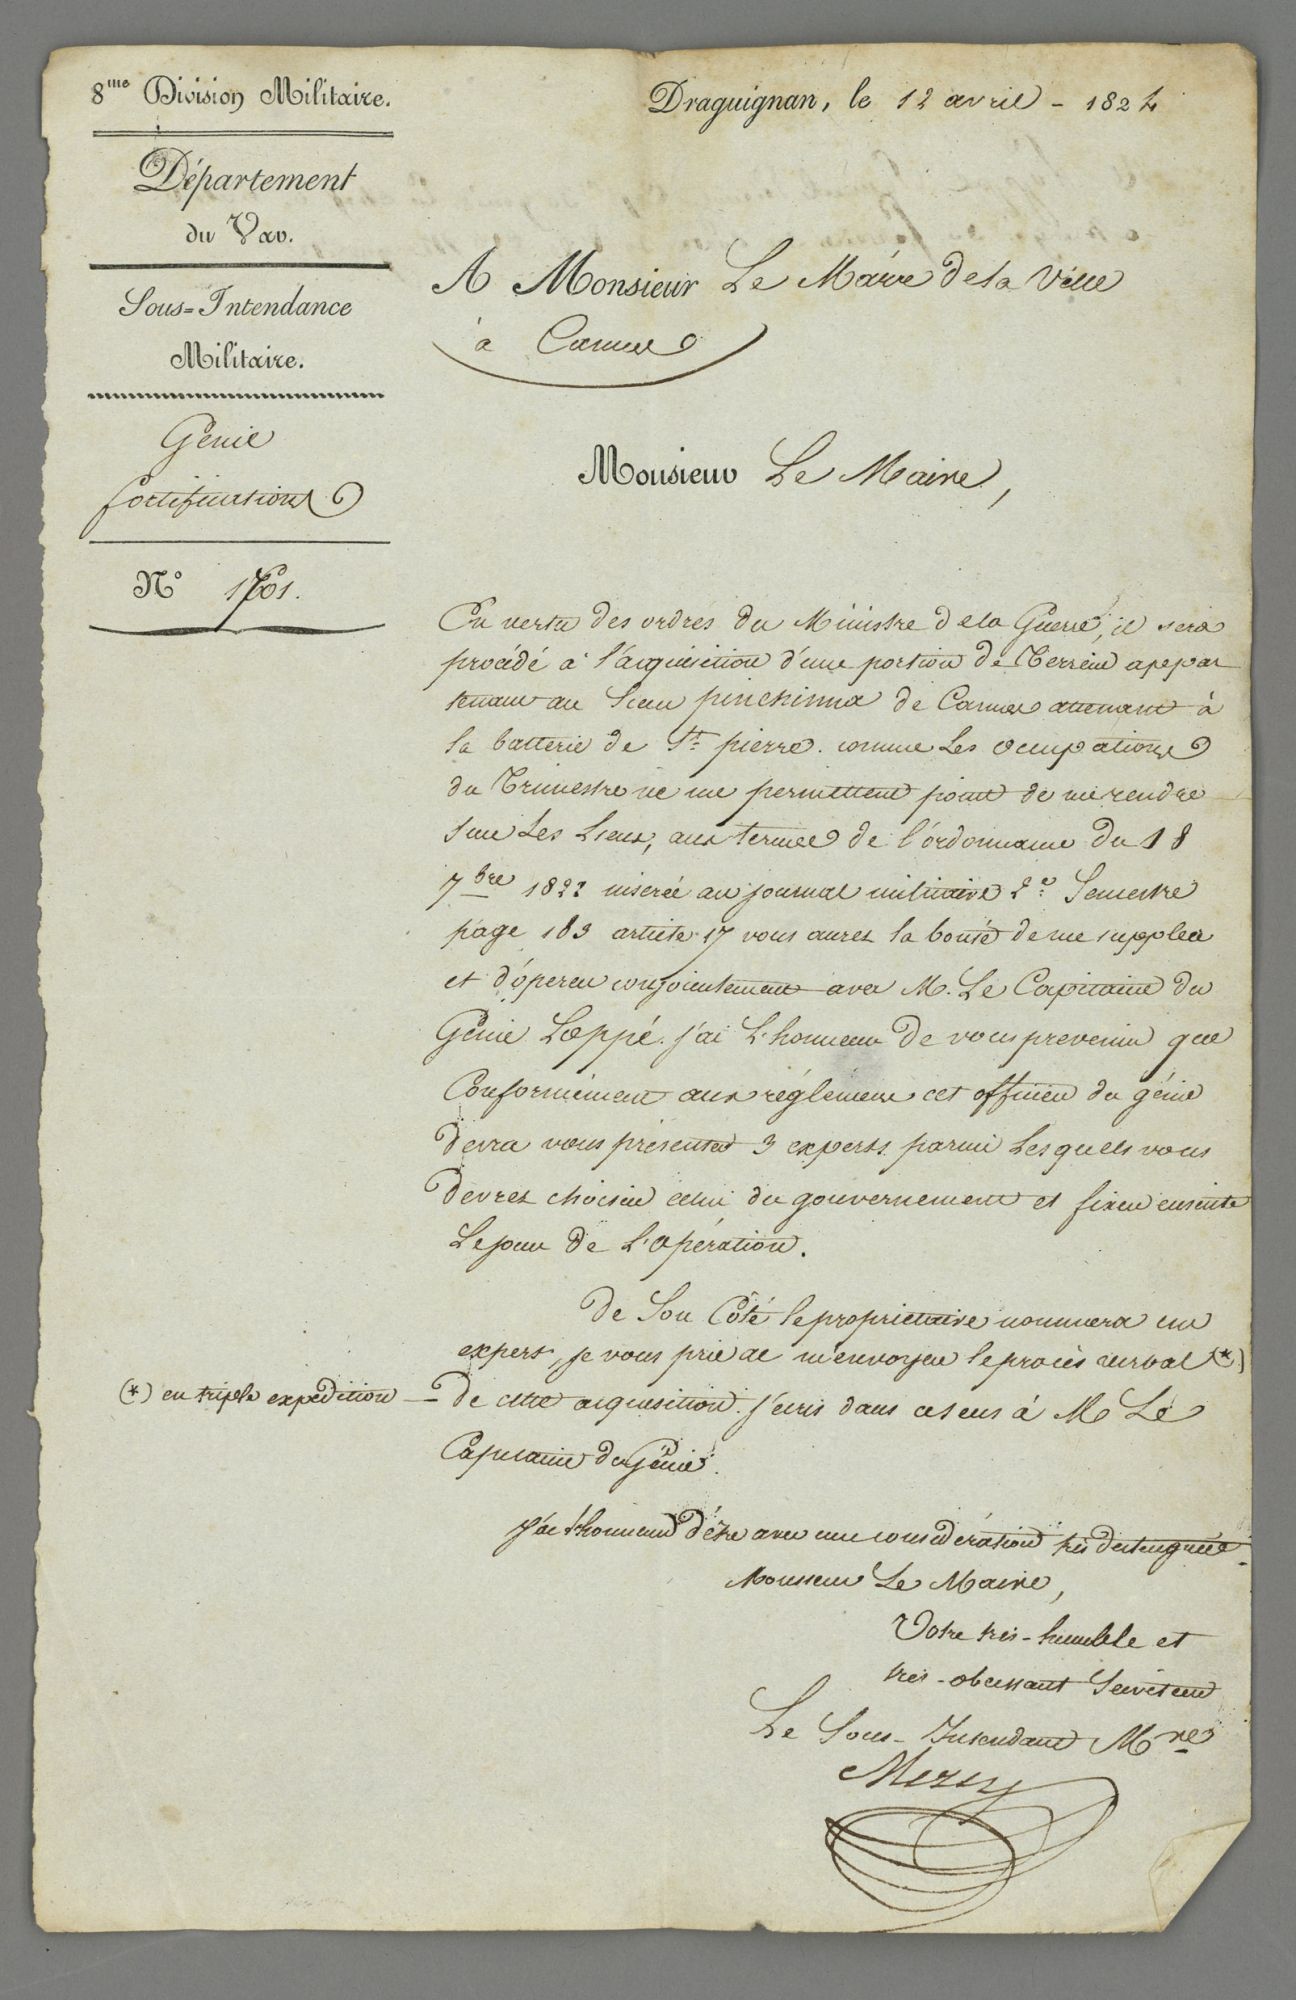 8me Division Militaire.
Département
du Var.
Sous-Intendance
Militaire.
Génie
fortifications
N° 1701.
Draguignan, le 12 avril - 1824
A Monsieur Le Maire de la Ville
à Cannes
Monsieur Le Maire,
En vertu des ordres du Ministre de la Guerre, il sera
procédé à l'acquisition d'une portion de Terrein appar
tenant au Sieur pinchinna de Cannes attenant à
la batterie de St. pierre. comme Les occupations
du Trimestre ne me permettent point de me rendre
sur Les Lieux, aux termes de l'ordonnance du 18
7bre 1822 inserée au journal militaire 2e. Semestre
page 183 article 17 vous aurez la bonté de me suppléer
et d'opérer conjointement avec M. Le Capitaine du
Génie Lœppé. j'ai L'honneur de vous prevenir que
Conformément aux réglémens cet officier du génie
devra vous présenter 3 experts parmi Lesquels vous
devrez choisir celui du gouvernement et fixer ensuite
Le jour de L'opération.
de Son Côté le proprietaire nommera un
expert, je vous prie de m'envoyer le procès verbal (*)
(*) en triple expédition — de cette acquisition. j'écris dans ce sens à M Le
Capitaine du Génie.
j'ai l'honneur d'être avec une considération très distinguée
Monsieur Le Maire,
Votre très-humble et
très-obeissant Serviteur
Le Sous-Intendant Mre